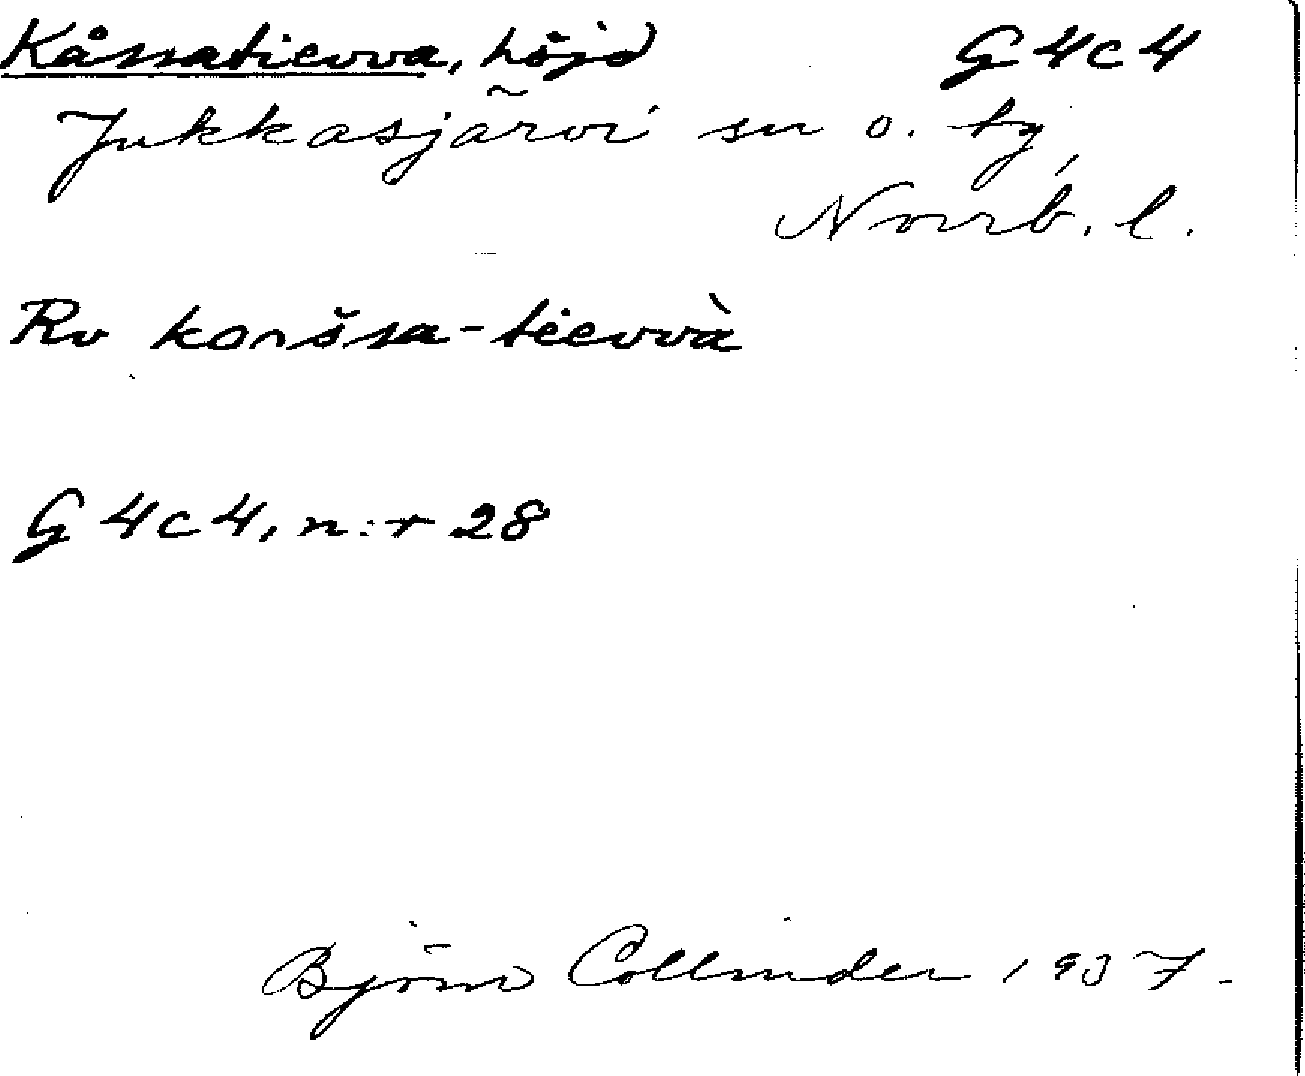 Kåssatievva, höjd G4c4
Jukkasjärvi sn o. tg,
Norrb. l.
Rv koršsa-tievvà
G4c4, n:r 28
Björn Collinder 1937.